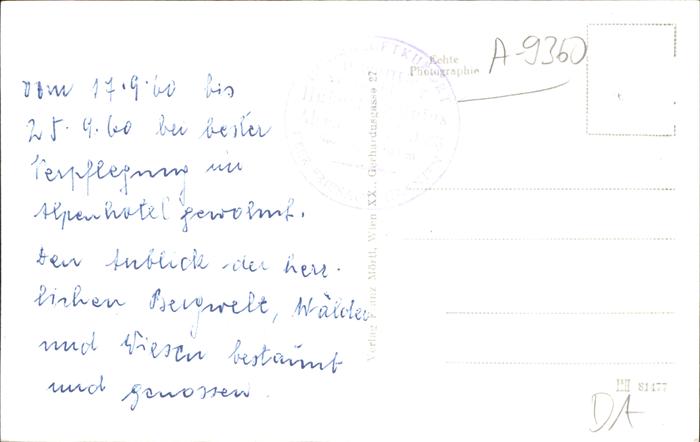 vom 17.9.60 bis
25.9.60 bei bester
Verpflegung im
Alpenhotel gewohnt.
Den Anblick der herr-
lichen Bergwelt, Wälder
und Wiesen bestaunt
und genossen.
Echte
Photographie
A-9360
Verlag Franz Mörtl, Wien XX., Gerhardusgasse 27
81477
DA